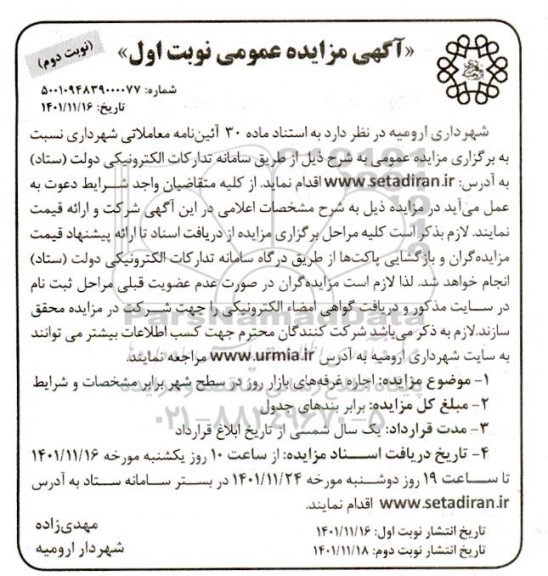 «آگهی مزایده عمومی نوبت اول»
(نوبت دوم)
شماره: ۵۰۰۱۰۹۴۸۳۹۰۰۰۰۷۷
تاریخ: ۱۴۰۱/۱۱/۱۶
شهرداری ارومیه در نظر دارد به استناد ماده ۳۰ آئین‌نامه معاملاتی شهرداری نسبت
به برگزاری مزایده عمومی به شرح ذیل از طریق سامانه تدارکات الکترونیکی دولت (ستاد)
به آدرس: www.setadiran.ir اقدام نماید. از کلیه متقاضیان واجد شرایط دعوت به
عمل می‌آید در مزایده ذیل به شرح مشخصات اعلامی در این آگهی شرکت و ارائه قیمت
نمایند. لازم بذکر است کلیه مراحل برگزاری مزایده از دریافت اسناد تا ارائه پیشنهاد قیمت
مزایده‌گران و بازگشایی پاکت‌ها از طریق درگاه سامانه تدارکات الکترونیکی دولت (ستاد)
انجام خواهد شد. لذا لازم است مزایده‌گران در صورت عدم عضویت قبلی مراحل ثبت نام
در سایت مذکور و دریافت گواهی امضاء الکترونیکی را جهت شرکت در مزایده محقق
سازند.لازم به ذکر می‌باشد شرکت کنندگان محترم جهت کسب اطلاعات بیشتر می توانند
به سایت شهرداری ارومیه به آدرس www.urmia.ir مراجعه نمایند.
۱- موضوع مزایده: اجاره غرفه‌های بازار روز در سطح شهر برابر مشخصات و شرایط
۲- مبلغ کل مزایده: برابر بندهای جدول
۳- مدت قرارداد: یک سال شمسی از تاریخ ابلاغ قرارداد
۴- تاریخ دریافت اسناد مزایده: از ساعت ۱۰ روز یکشنبه مورخه ۱۴۰۱/۱۱/۱۶
تا ساعت ۱۹ روز دوشنبه مورخه ۱۴۰۱/۱۱/۲۴ در بستر سامانه ستاد به آدرس
www.setadiran.ir اقدام نمایند.
تاریخ انتشار نوبت اول: ۱۴۰۱/۱۱/۱۶
تاریخ انتشار نوبت دوم: ۱۴۰۱/۱۱/۱۸
مهدی‌زاده
شهردار ارومیه
ParsNamadData
۰۲۱-۸۸۳۴۹۶۷۰-۵